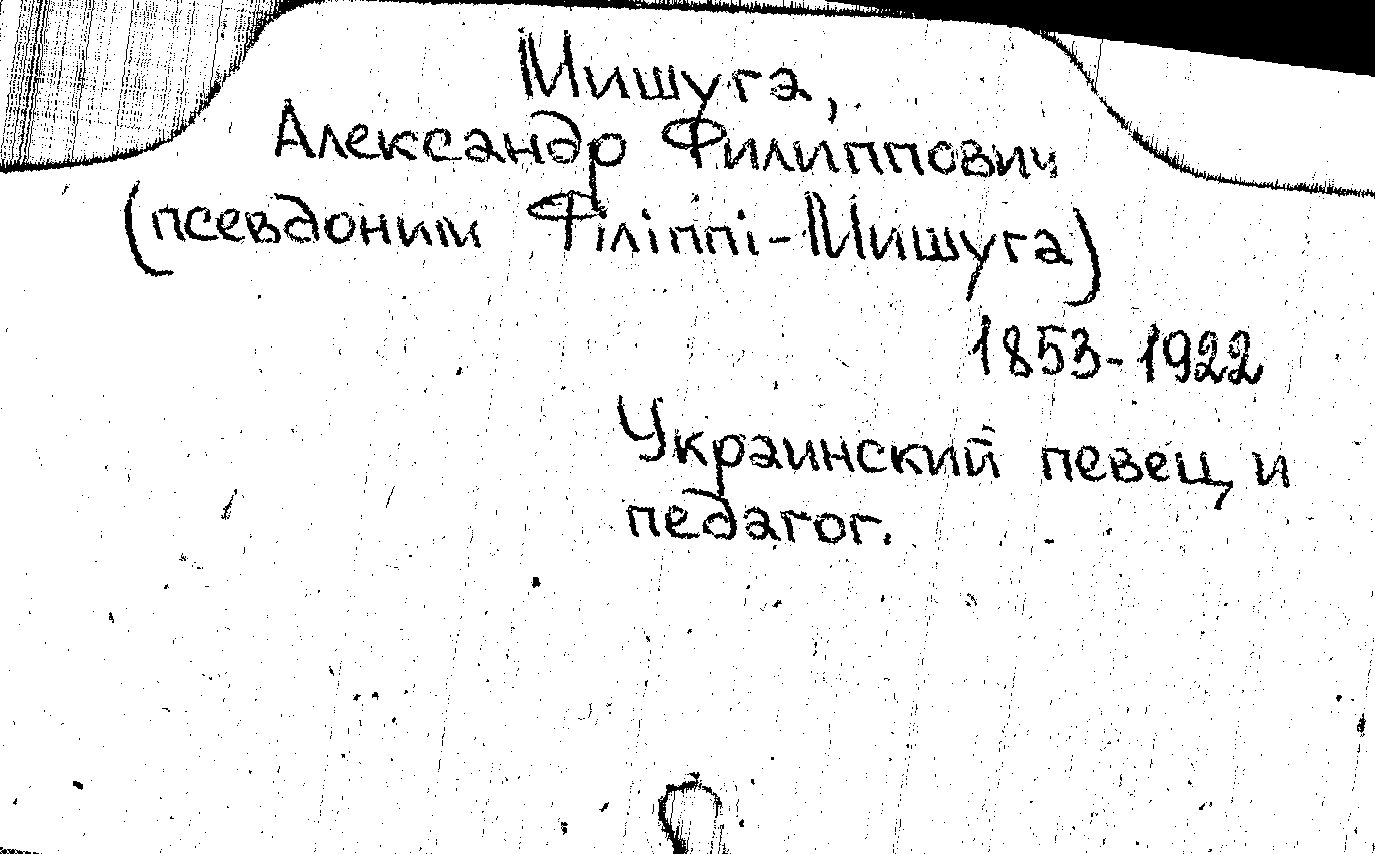 Мишуга,
Александр Филиппович
(псевдоним Філіппі-Мишуга)
1853-1922
Украинский певец и
педагог.